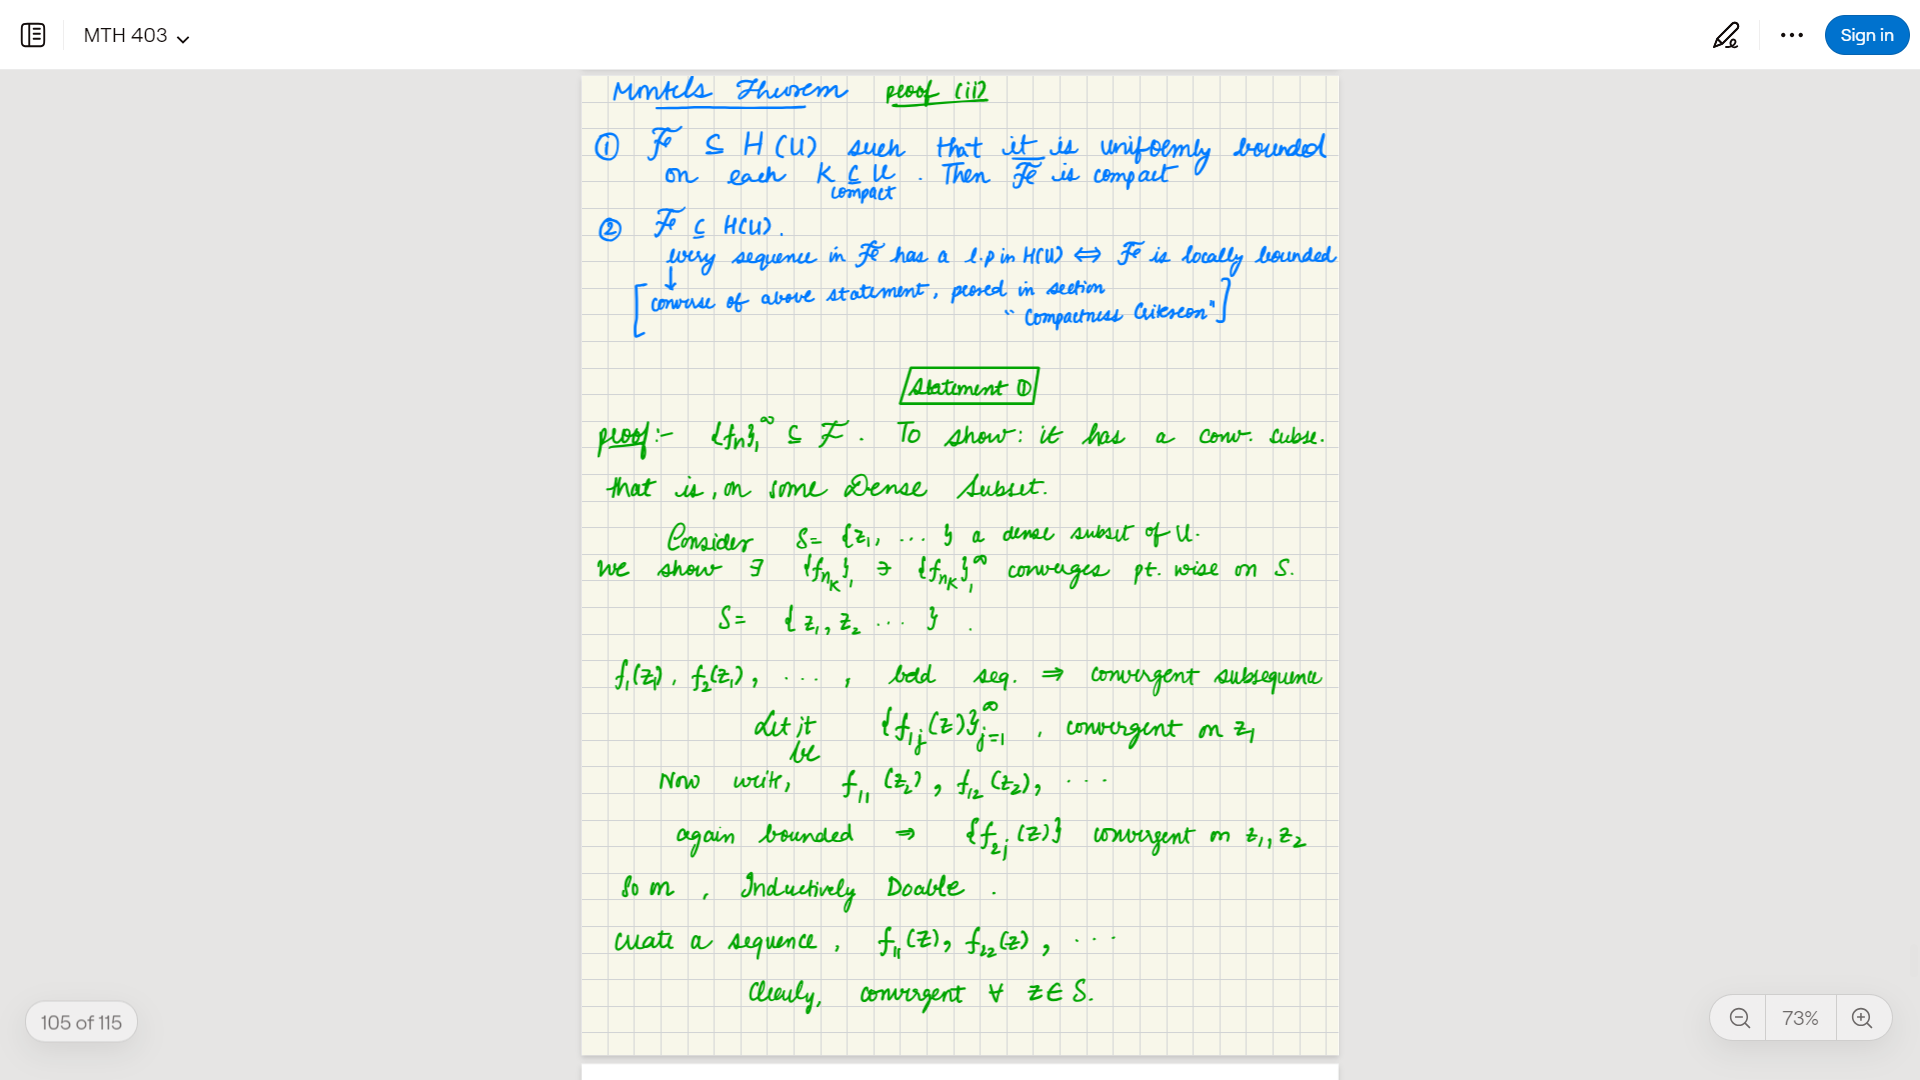 MTH 403
Sign in
Montels Theorem proof (ii)
① ℱ ⊆ H(U) such that it is uniformly bounded
on each K ⊆ U. Then ℱ̅ is compact
compact
② ℱ ⊆ H(U).
every sequence in ℱ has a l.p in H(U) ⇔ ℱ is locally bounded
↓
[converse of above statement, proved in section
"Compactness Criterion"]
Statement ①
proof:- {fₙ}₁^∞ ⊆ ℱ. To show: it has a conv. subse.
that is, on some Dense Subset.
Consider S= {z₁, ... } a dense subset of U.
We show ∃ {f_{n_k}}₁ ∋ {f_{n_k}}₁^∞ converges pt. wise on S.
S= {z₁, z₂ ... }.
f₁(z₁), f₂(z₁), ..., bdd seq. ⇒ convergent subsequence
Let it be {f_{1j}(z)}_{j=1}^∞, convergent on z₁
Now write, f₁₁(z₂), f₁₂(z₂), ...
again bounded ⇒ {f_{2j}(z)} convergent on z₁, z₂
So on, Inductively Doable.
create a sequence, f₁₁(z), f₂₂(z), ...
Clearly, convergent ∀ z∈ S.
105 of 115
73%